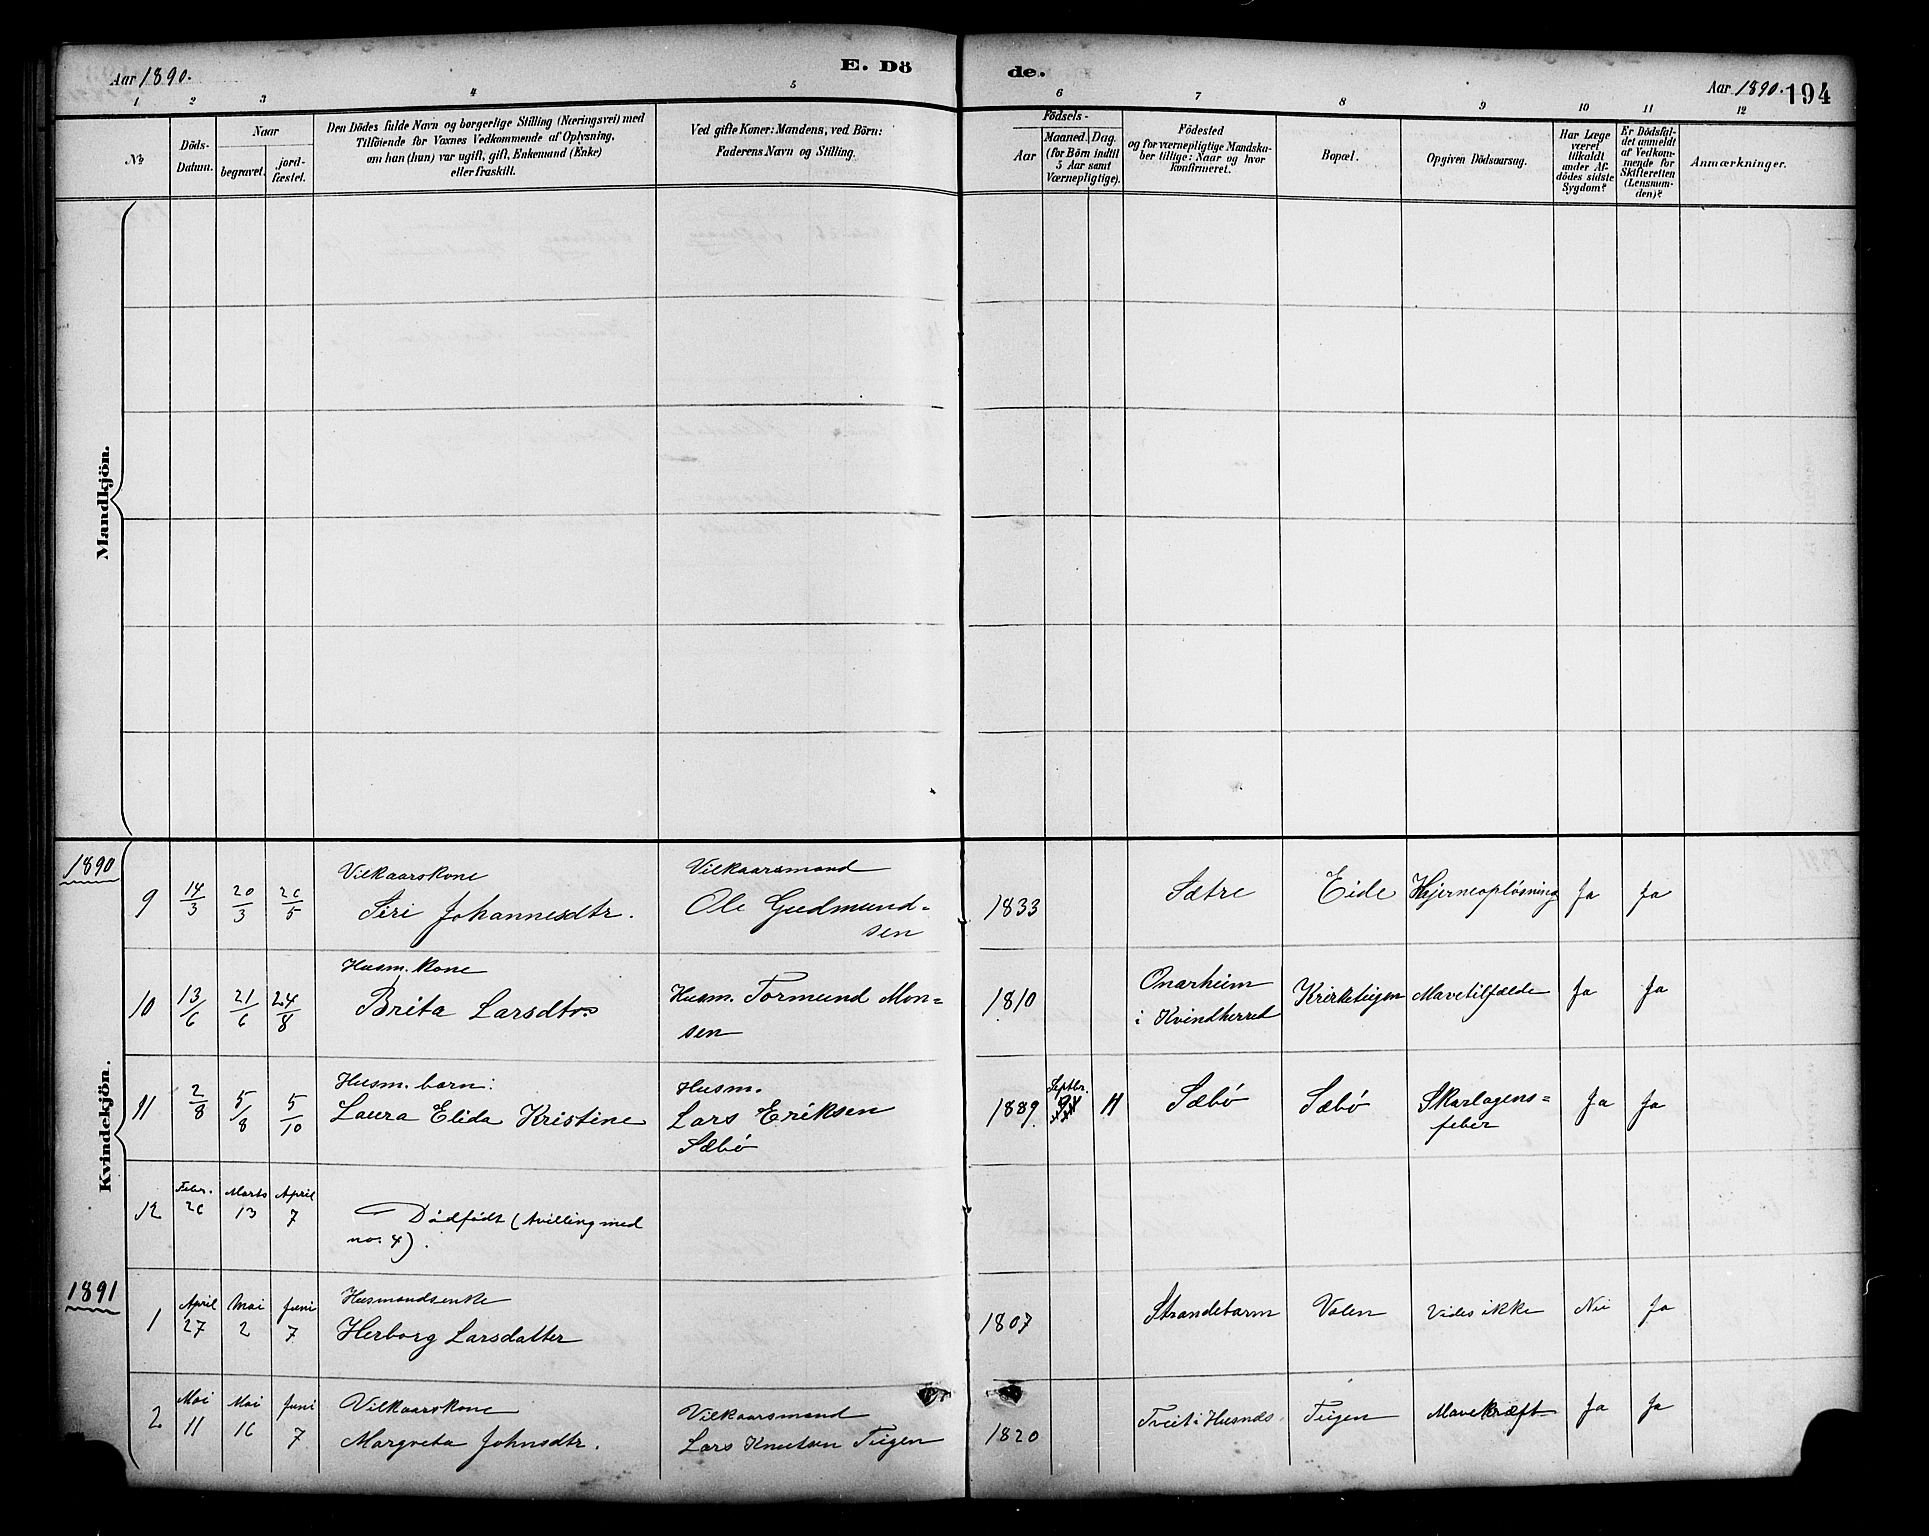 Aar 1890.
E. Dö
de.
Aar 1890.
194
1
2
3
4
5
6
7
8
9
10
11
12
№
Döds-
Datum.
Naar
begravet.
jord-
fæstet.
Den Dödes fulde Navn og borgerlige Stilling (Næringsvei) med
Tilföiende for Voxnes Vedkommende af Oplysning,
om han (hun) var ugift, gift, Enkemand (Enke)
eller fraskilt.
Ved gifte Koner: Mandens, ved Börn:
Faderens Navn og Stilling.
Födsels-
Aar
Maaned.
Dag.
(for Börn indtil
5 Aar samt
Værnepligtige).
Födested
og for værnepligtige Mandska-
ber tillige: Naar og hvor
konfirmeret.
Bopæl.
Opgiven Dödsaarsag.
Har Læge
været
tilkaldt
under Af-
dödes sidste
Sygdom?
Er Dödsfal-
det anmeldt
af Vedkom-
mende for
Skifteretten
(Lensman-
den)?
Anmærkninger.
Mandkjön.
Kvindekjön.
1890
9
14/3
20/3
Vilkaarskone
Siri Johannesdtr.
Vilkaarsmand
Ole Gudmund=
sen
1833
Sætre
Eide
Hjerneopløsning
Ja
Ja
10
13/6
21/6
24/8
Husm. kone
Brita Larsdtr.
Husm. Tormund Mon=
sen
1810
Onarheim
i Kvindherred
Mavetilfælde
Ja
Ja
11
2/8
5/8
5/10
Husm. barn:
Laura Elida Kristine
Husm.
Lars Eriksen
Sæbø
1889.
Septbr.
11
Sæbø
Sæbø
Skarlagens=
feber
Ja
Ja
12
Febr.
Marts
13
April
7
Dødfødt (tvilling med
no. 4).
1891
1
April
27
Mai
2
Juni
7
Husmandsenke
Herborg Larsdatter
1807
Strandebarm
Valen
Vides ikke
Nei
Ja
2
Mai
11
Mai
16
Juni
7
Vilkaarskone
Margreta Johnsdtr.
Vilkaarsmand
Lars Knutsen Teigen
1820
Tveit i Husnæs
Teigen
Mavekræft
Ja
Ja